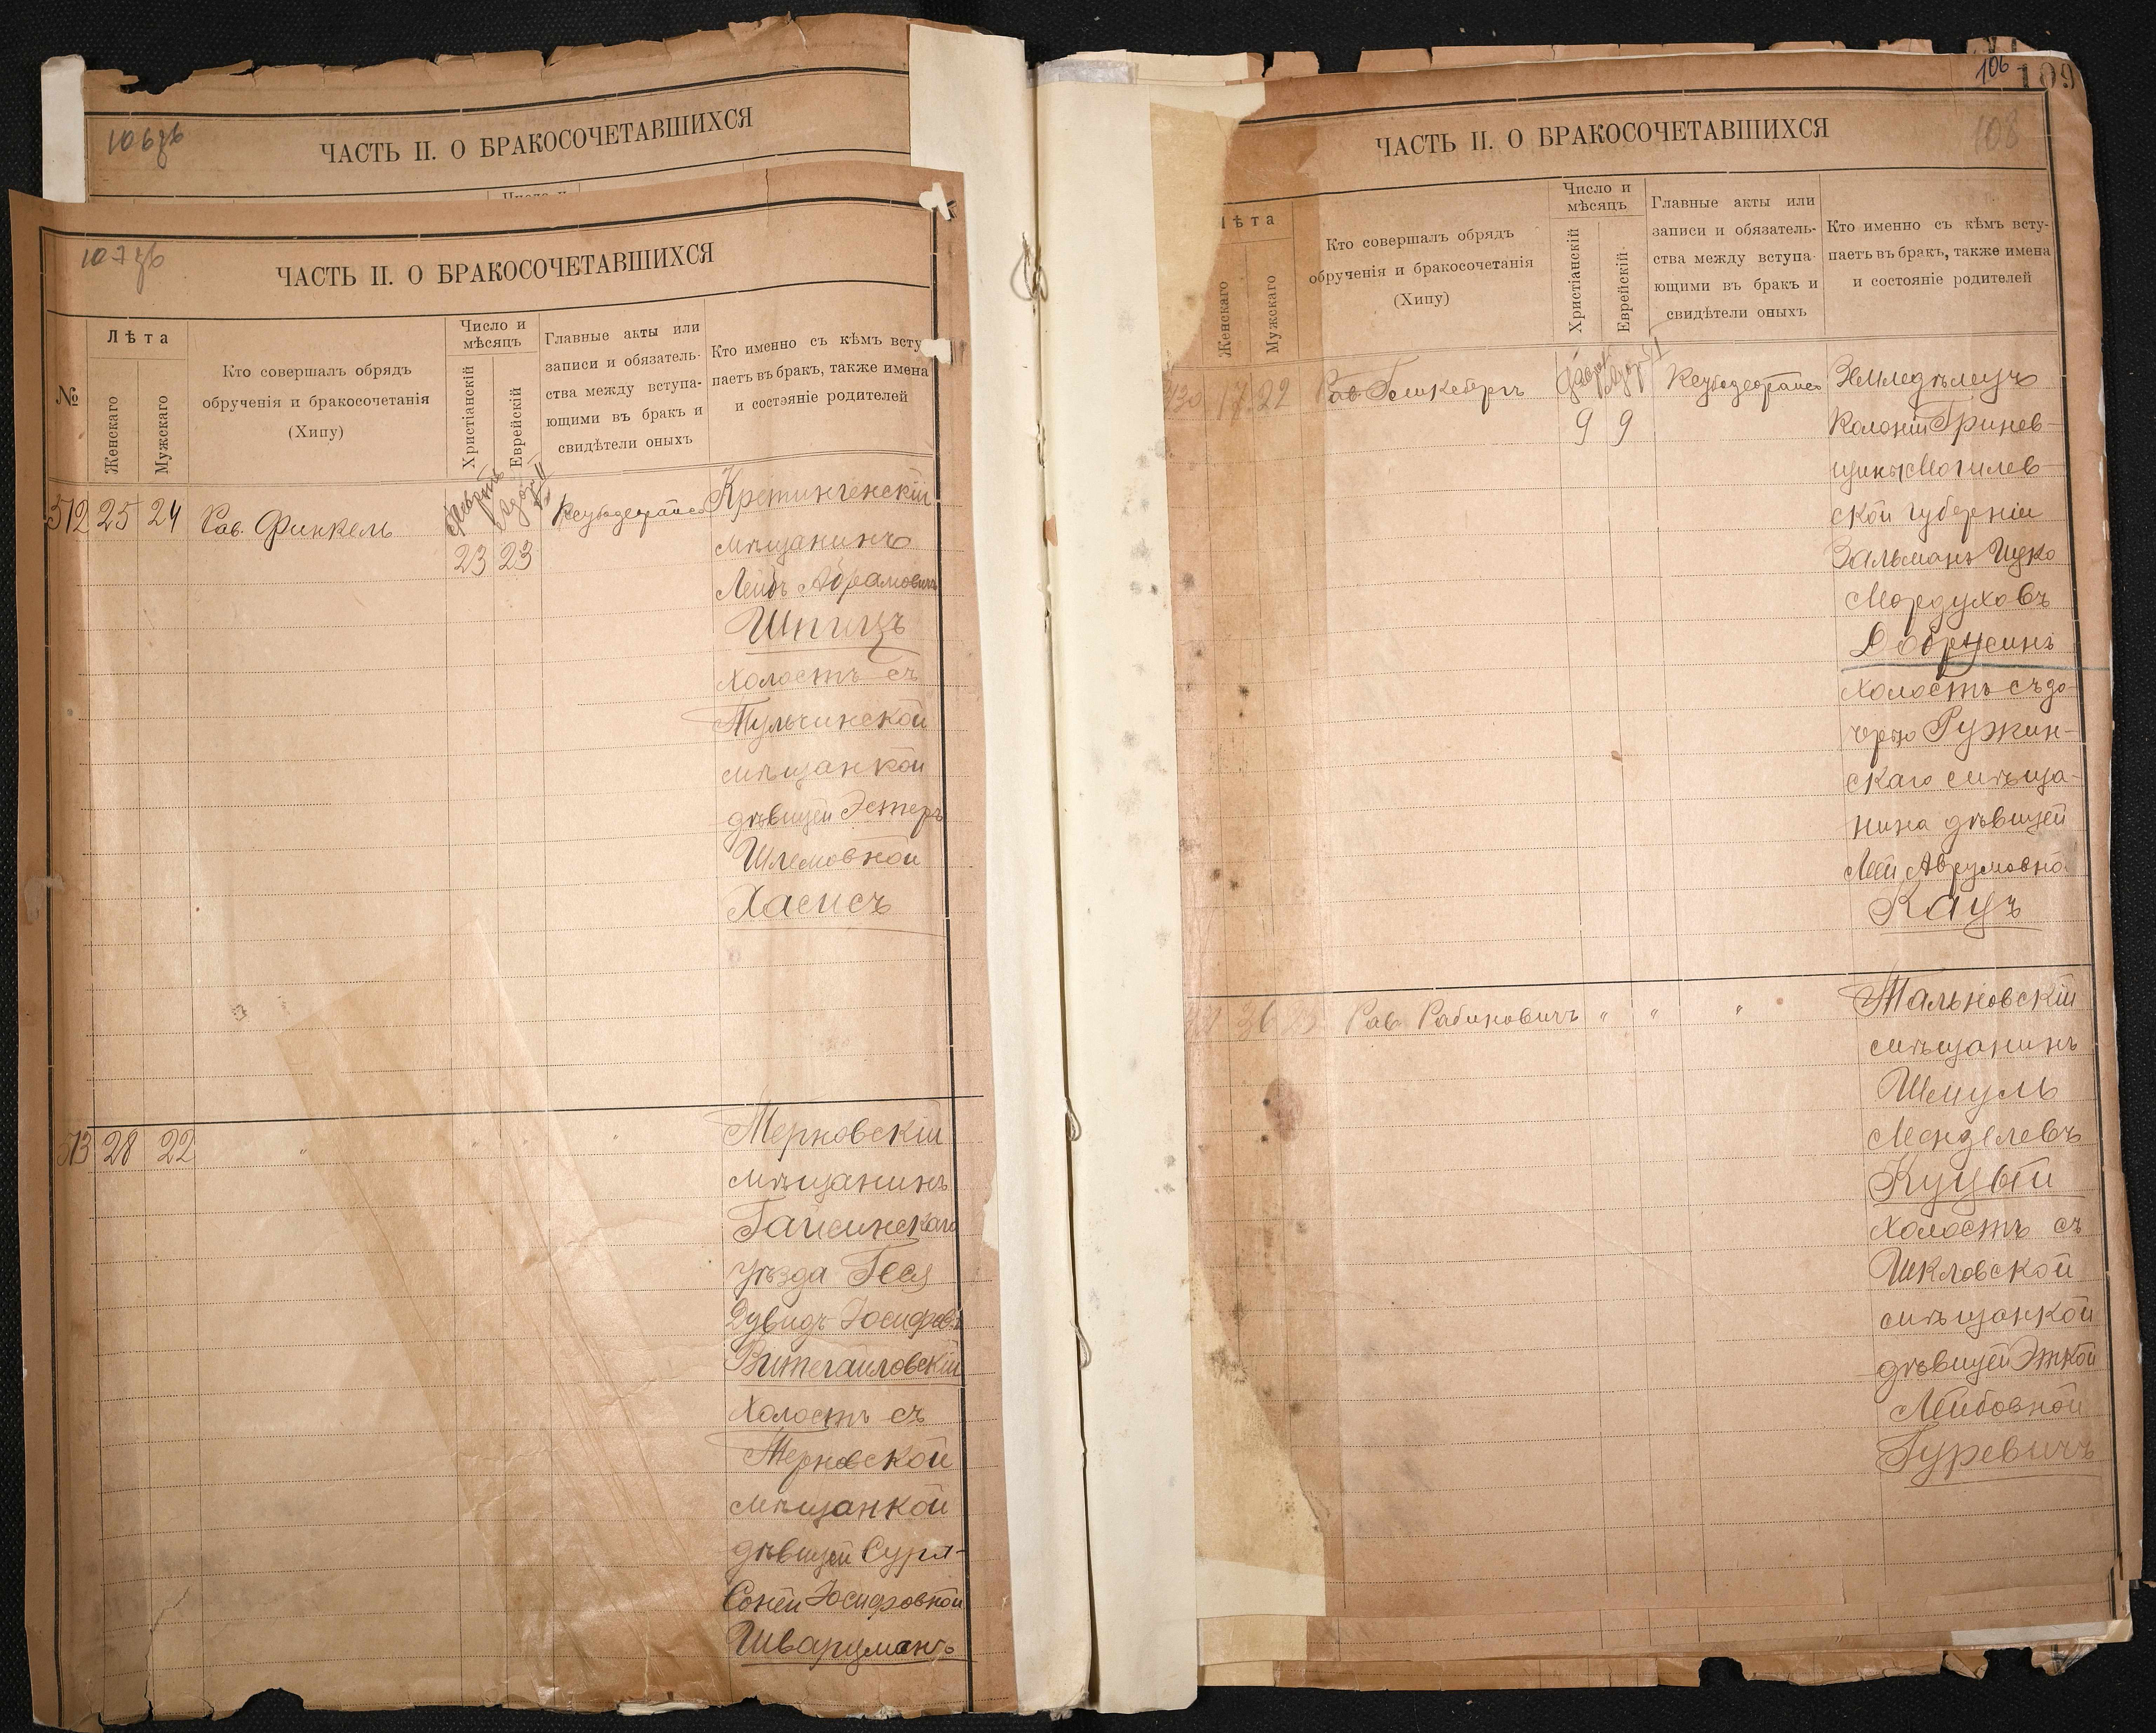 ЧАСТЬ II. О БРАКОСОЧЕТАВШИХСЯ
107
ЧАСТЬ II. О БРАКОСОЧЕТАВШИХСЯ
№
Лѣта
Женскаго
Мужскаго
Кто совершалъ обрядъ
обрученія и бракосочетанія
(Хипу)
Число и
мѣсяцъ
Христіанскій
Еврейскій
Главные акты или
записи и обязатель-
ства между вступа-
ющими въ бракъ и
свидѣтели оныхъ
Кто именно съ кѣмъ всту-
паетъ въ бракъ, также имена
и состояніе родителей
512 25 24 Рав. Финкель
23 23
Кретингенскій
мѣщанинъ
Лейбъ Абрамовичъ
Шпицъ
холостъ съ
Тульчинской
мѣщанкой
дѣвицей Эстеръ
Шлемовной
Хасисъ
513 28 22 " " " "
Терновскій
мѣщанинъ
Гайсинскаго
уѣзда
Дувидъ Іосифовъ
холостъ съ
Терновской
мѣщанкой
дѣвицей Сура-
Соней Іосифовной
Шварцманъ
106 109
108
ЧАСТЬ II. О БРАКОСОЧЕТАВШИХСЯ
Лѣта
Женскаго
Мужскаго
Кто совершалъ обрядъ
обрученія и бракосочетанія
(Хипу)
Число и
мѣсяцъ
Христіанскій
Еврейскій
Главные акты или
записи и обязатель-
ства между вступа-
ющими въ бракъ и
свидѣтели оныхъ
Кто именно съ кѣмъ всту-
паетъ въ бракъ, также имена
и состояніе родителей
17 22
9 9
Земледѣлецъ
Колоніи Гринев-
щины Могилев-
ской губерніи
Зальманъ Ицко
Мордуховъ
Добржинъ
холостъ съ до-
черью Ружин-
скаго мѣща-
нина дѣвицей
Леей Аврумовной
Кацъ
36 Рав. Рабиновичъ " " "
Тальновскій
мѣщанинъ
Шмуль
Менделевъ
Куцый
холостъ съ
Шкловской
мѣщанкой
дѣвицей Эткой
Лейбовной
Гуревичъ